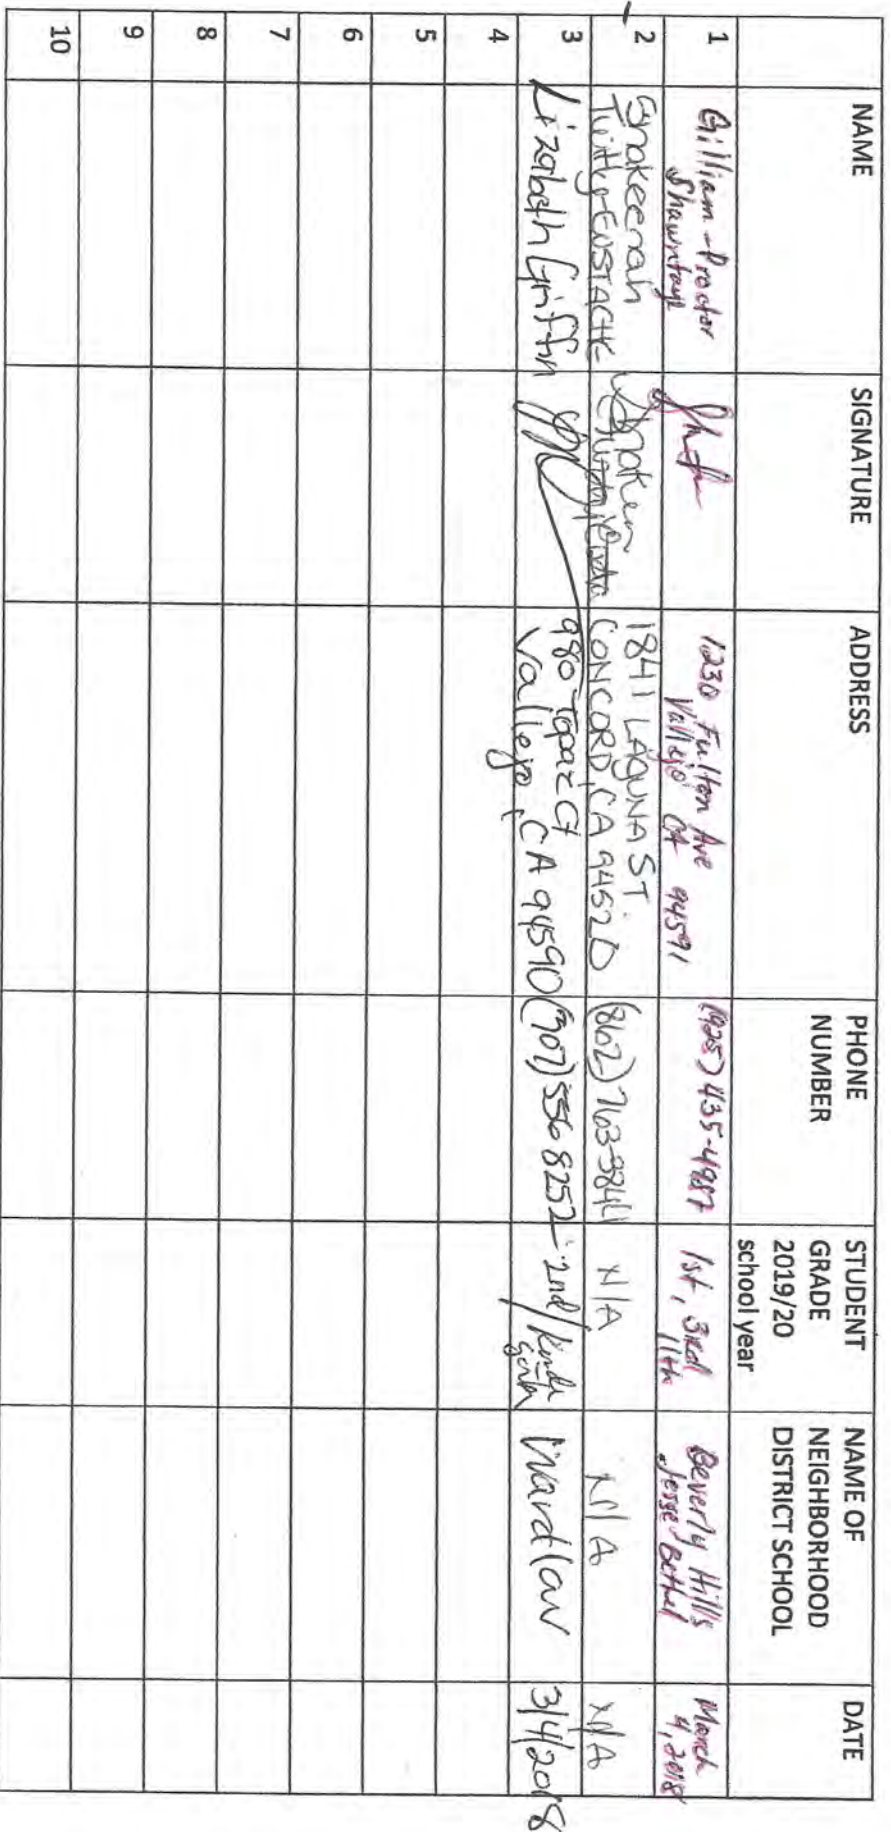 NAME
SIGNATURE
ADDRESS
PHONE
NUMBER
STUDENT
GRADE
2019/20
school year
NAME OF
NEIGHBORHOOD
DISTRICT SCHOOL
DATE
1
Gilliam-Proctor
Shawntaye
1230 Fulton Ave
Vallejo CA 94591
(925) 435-4987
1st, 3rd
11th
Beverly Hills
Jesse Bethel
March
4, 2018
2
Shakeenah
1841 LAGUNA ST
CONCORD, CA 94520
(862)
N/A
N/A
N/A
3
Lizabeth Griffin
980 Topaz Ct
Vallejo, CA 94590
(707) 556 8252
2nd/Kinder
garten
Wardlaw
3/4/2018
4
5
6
7
8
9
10